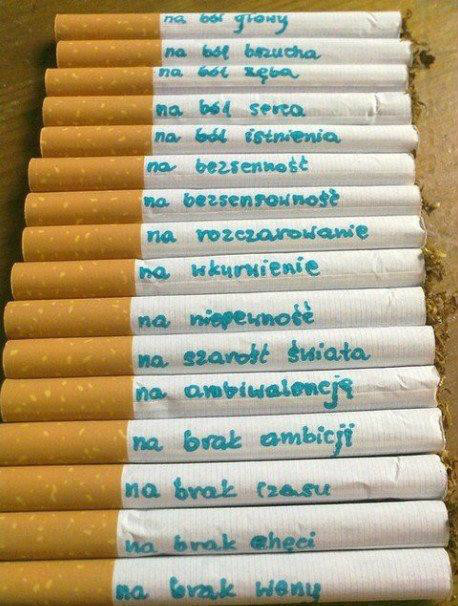 na ból głowy
na ból brzucha
na ból zęba
na ból serca
na ból istnienia
na bezsenność
na bezsensowność
na rozczarowanie
na wkurwienie
na niepewność
na szarość świata
na ambiwalencję
na brak ambicji
na brak czasu
na brak chęci
na brak weny